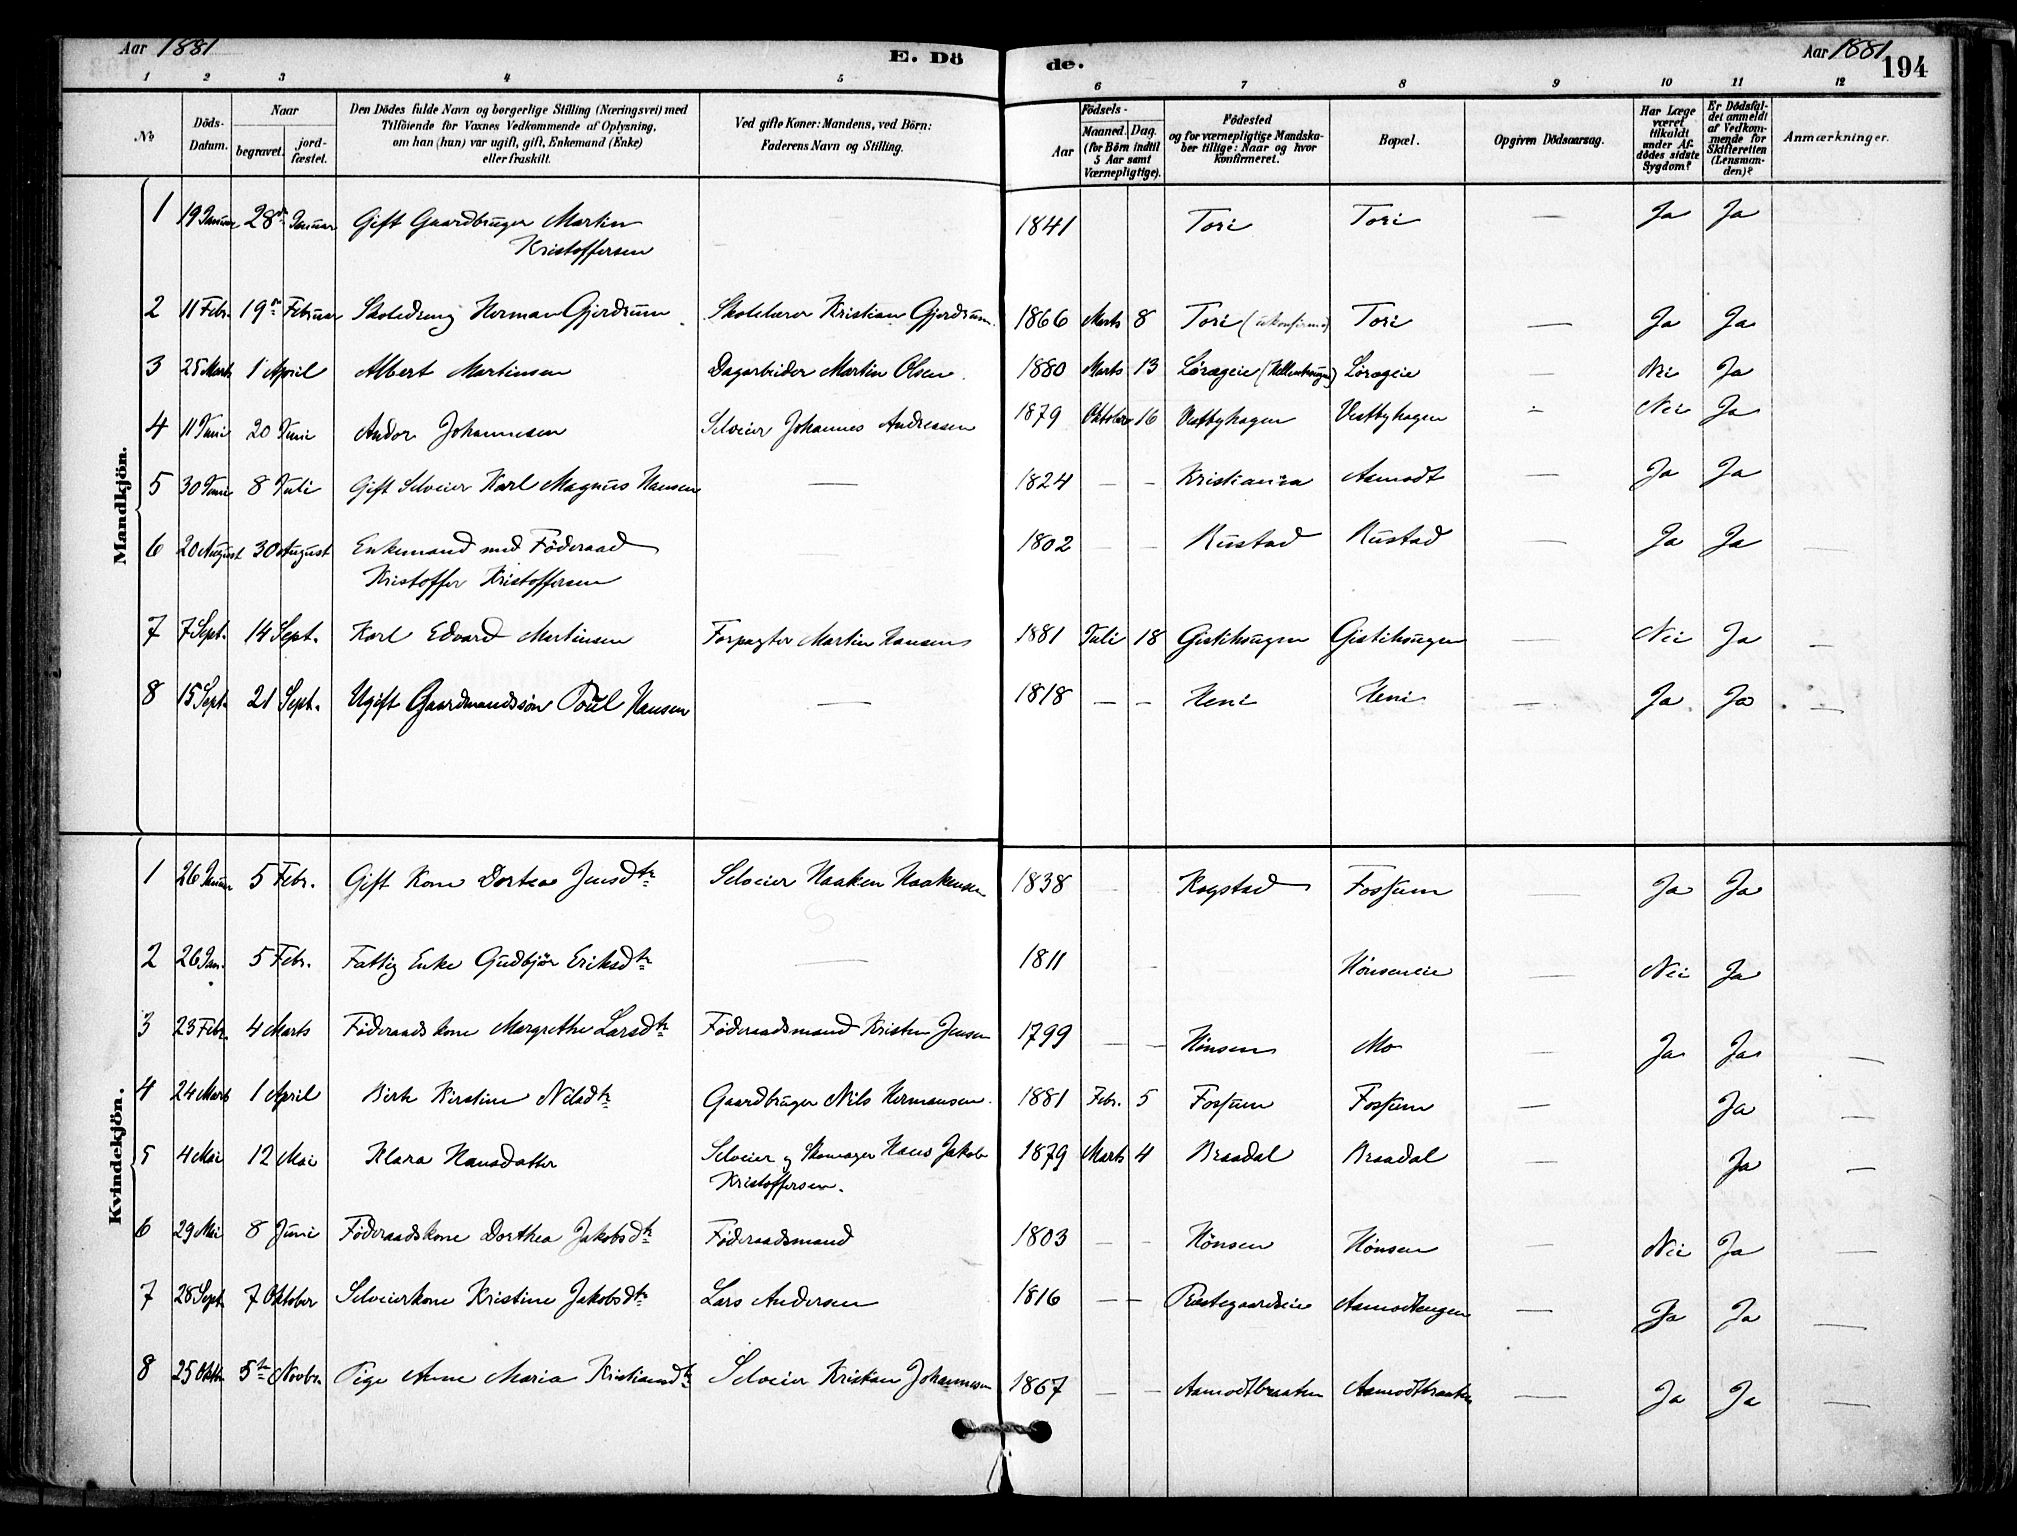 Aar 1881
E. Dö
de.
Aar 1881
194
1 2 3 4 5 6 7 8 9 10 11 12
No
Döds-Datum.
Naar
begravet.
jord-fæstet.
Den Dödes fulde Navn og borgerlige Stilling (Næringsvei) med
Tilföiende for Voxnes Vedkommende af Oplysning,
om han (hun) var ugift, gift, Enkemand (Enke)
eller fraskilt.
Ved gifte Koner: Mandens, ved Börn:
Faderens Navn og Stilling.
Födsels-
Aar
Maaned. Dag.
(for Börn indtil
5 Aar samt
Værnepligtige).
Födested
og for værnepligtige Mandska-
ber tillige: Naar og hvor
Konfirmeret.
Bopæl.
Opgiven Dödsaarsag.
Har Læge
været
tilkaldt
under Af-
dödes sidste
Sygdom?
Er Dödsfal-
det anmeldt
af Vedkom-
mende for
Skifteretten
(Lensman-
den)?
Anmærkninger.
Mandkjön.
1 19 Januar 28de Januar Gift Gaardbruger Martin — 1841 Tori Tori — Ja Ja
Kristoffersen
2 11 Febr. 19de Februar Skoledreng Herman Gjerdrum Skolelærer Kristian Gjerdrum. 1866 Marts 8 Tori (ukonfirm.) Tori — Ja Ja
3 25 Marts 1 April Albert Martinsen Dagarbeider Martin Olsen. 1880 Marts 13 Løraeie Løraeie — Nei Ja
4 11 Juni 20 Juni Andor Johannesen Selveier Johannes Andreasen 1879 Oktober 16 Vestbyhagen Vestbyhagen - Nei Ja
5 30 Juni 8 Juli Gift Selveier Karl Magnus Hansen — 1824 — — Kristiania Aamodt — Ja Ja
6 20 August 30 August Enkemand med Föderaad 1802 — — Rustad Rustad — Ja Ja —
Kristoffer Kristoffersen
7 7 Sept. 14 Sept. Karl Edvard Martinsen Forpagter Martin Hansen 1881 Juli 18 Gistihaugen Gistihaugen — Nei Ja —
8 15 Sept. 21 Sept. Ugift Gaardmandssön Poul Hansen — 1818 — — Heni Heni — Ja Ja —
Kvindekjön.
1 26 Januar 5 Febr. Gift Kone Dortea Jensdtr Selveier Haaken Haakensen 1838 — Kogstad Fossum — Ja Ja
2 26 Jan. 5 Febr. Fattig Enke Gudbjör Eriksdtr — 1811 — Hønseneie — Nei Ja
3 23 Febr. 4 Marts Föderaadskone Margrethe Larsdtr Föderaadsmand Kristen Jensen 1799 — — Hønsen Mo — Ja Ja —
4 24 Marts 1 April Berte Kirstine Nilsdtr Gaardbruger Nils Hermansen. 1881 Febr. 5 Fossum Fossum — Ja —
5 4 Mai 12 Mai Klara Hansdatter Selveier og Skomager Hans Jakob 1879 Marts 4 Braadal Braadal — Ja —
Kristoffersen.
6 29 Mai 8 Juni Föderaadskone Dorthea Jakobsdtr Föderaadsmand 1803 — — Hønsen Hønsen — Nei Ja —
7 28 Sept 7 Oktober Selveierkone Kristine Jakobsdtr Lars Andersen 1816 — — Præstegaardseie Aamodtengen — Ja Ja —
8 25 Oktbr 5te Novbr. Pige Anne Maria Kristiansdtr Selveier Kristian Johannesen 1867 — — Aamodtbraaten Aamodtbraaten — Ja Ja —